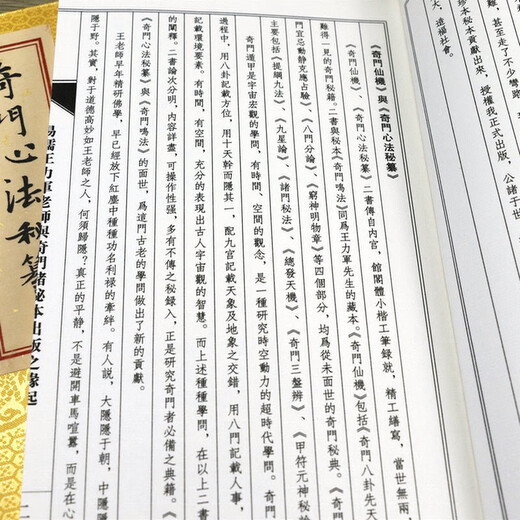 大、造福社會。
珍本貢獻出來，授權我正式出版，公諸于世
走了不少彎路
《奇門仙機》與《奇門心法秘纂》
《奇門仙機》、《奇門心法秘纂》二書傳自内宮，館閣體小楷工筆録就，精工繕寫，當世無兩，
難得一見的奇門秘籍。二書與秘本《奇門鳴法》同爲王力軍先生的藏本。《奇門仙機》包括《奇門八卦先天
門宜忌動静克應占驗》、《八門分論》、《窮神明物章》等四個部分，均爲從未面世的奇門秘典。《奇門
主要包括《提綱九法》、《九星論》、《諸門秘法》、《總發天機》、《奇門三盤辨》、《甲符元神秘論
奇門遁甲是宇宙宏觀的學問，有時間、空間的觀念，是一種研究時空動力的超時代學問。奇門
過程中，用八卦記載方位，用十天幹而隱其一，配九宮記載天象及地象之交錯，用八門記載人事，
記載環境要素。有時間，有空間，充分的表現出古人宇宙觀的智慧。而上述種種學問，在以上二書
的闡釋。二書論次分明，内容詳盡，可操作性强，多有不傳之秘録入，正是研究奇門者必備之典籍。
《奇門心法秘纂》與《奇門鳴法》的面世，爲這門古老的學問做出了新的貢獻。
王老師早年精研佛學，早已經放下紅塵中種種功名利禄的牽絆。有人説，大隱隱于朝，中隱隱
隱于野。其實，對于道德高妙如王老師之人，何須歸隱？真正的平静，不是避開車馬喧囂，而是在心
易儒王力軍老師與奇門諸秘本出版之緣起
奇門心法秘纂